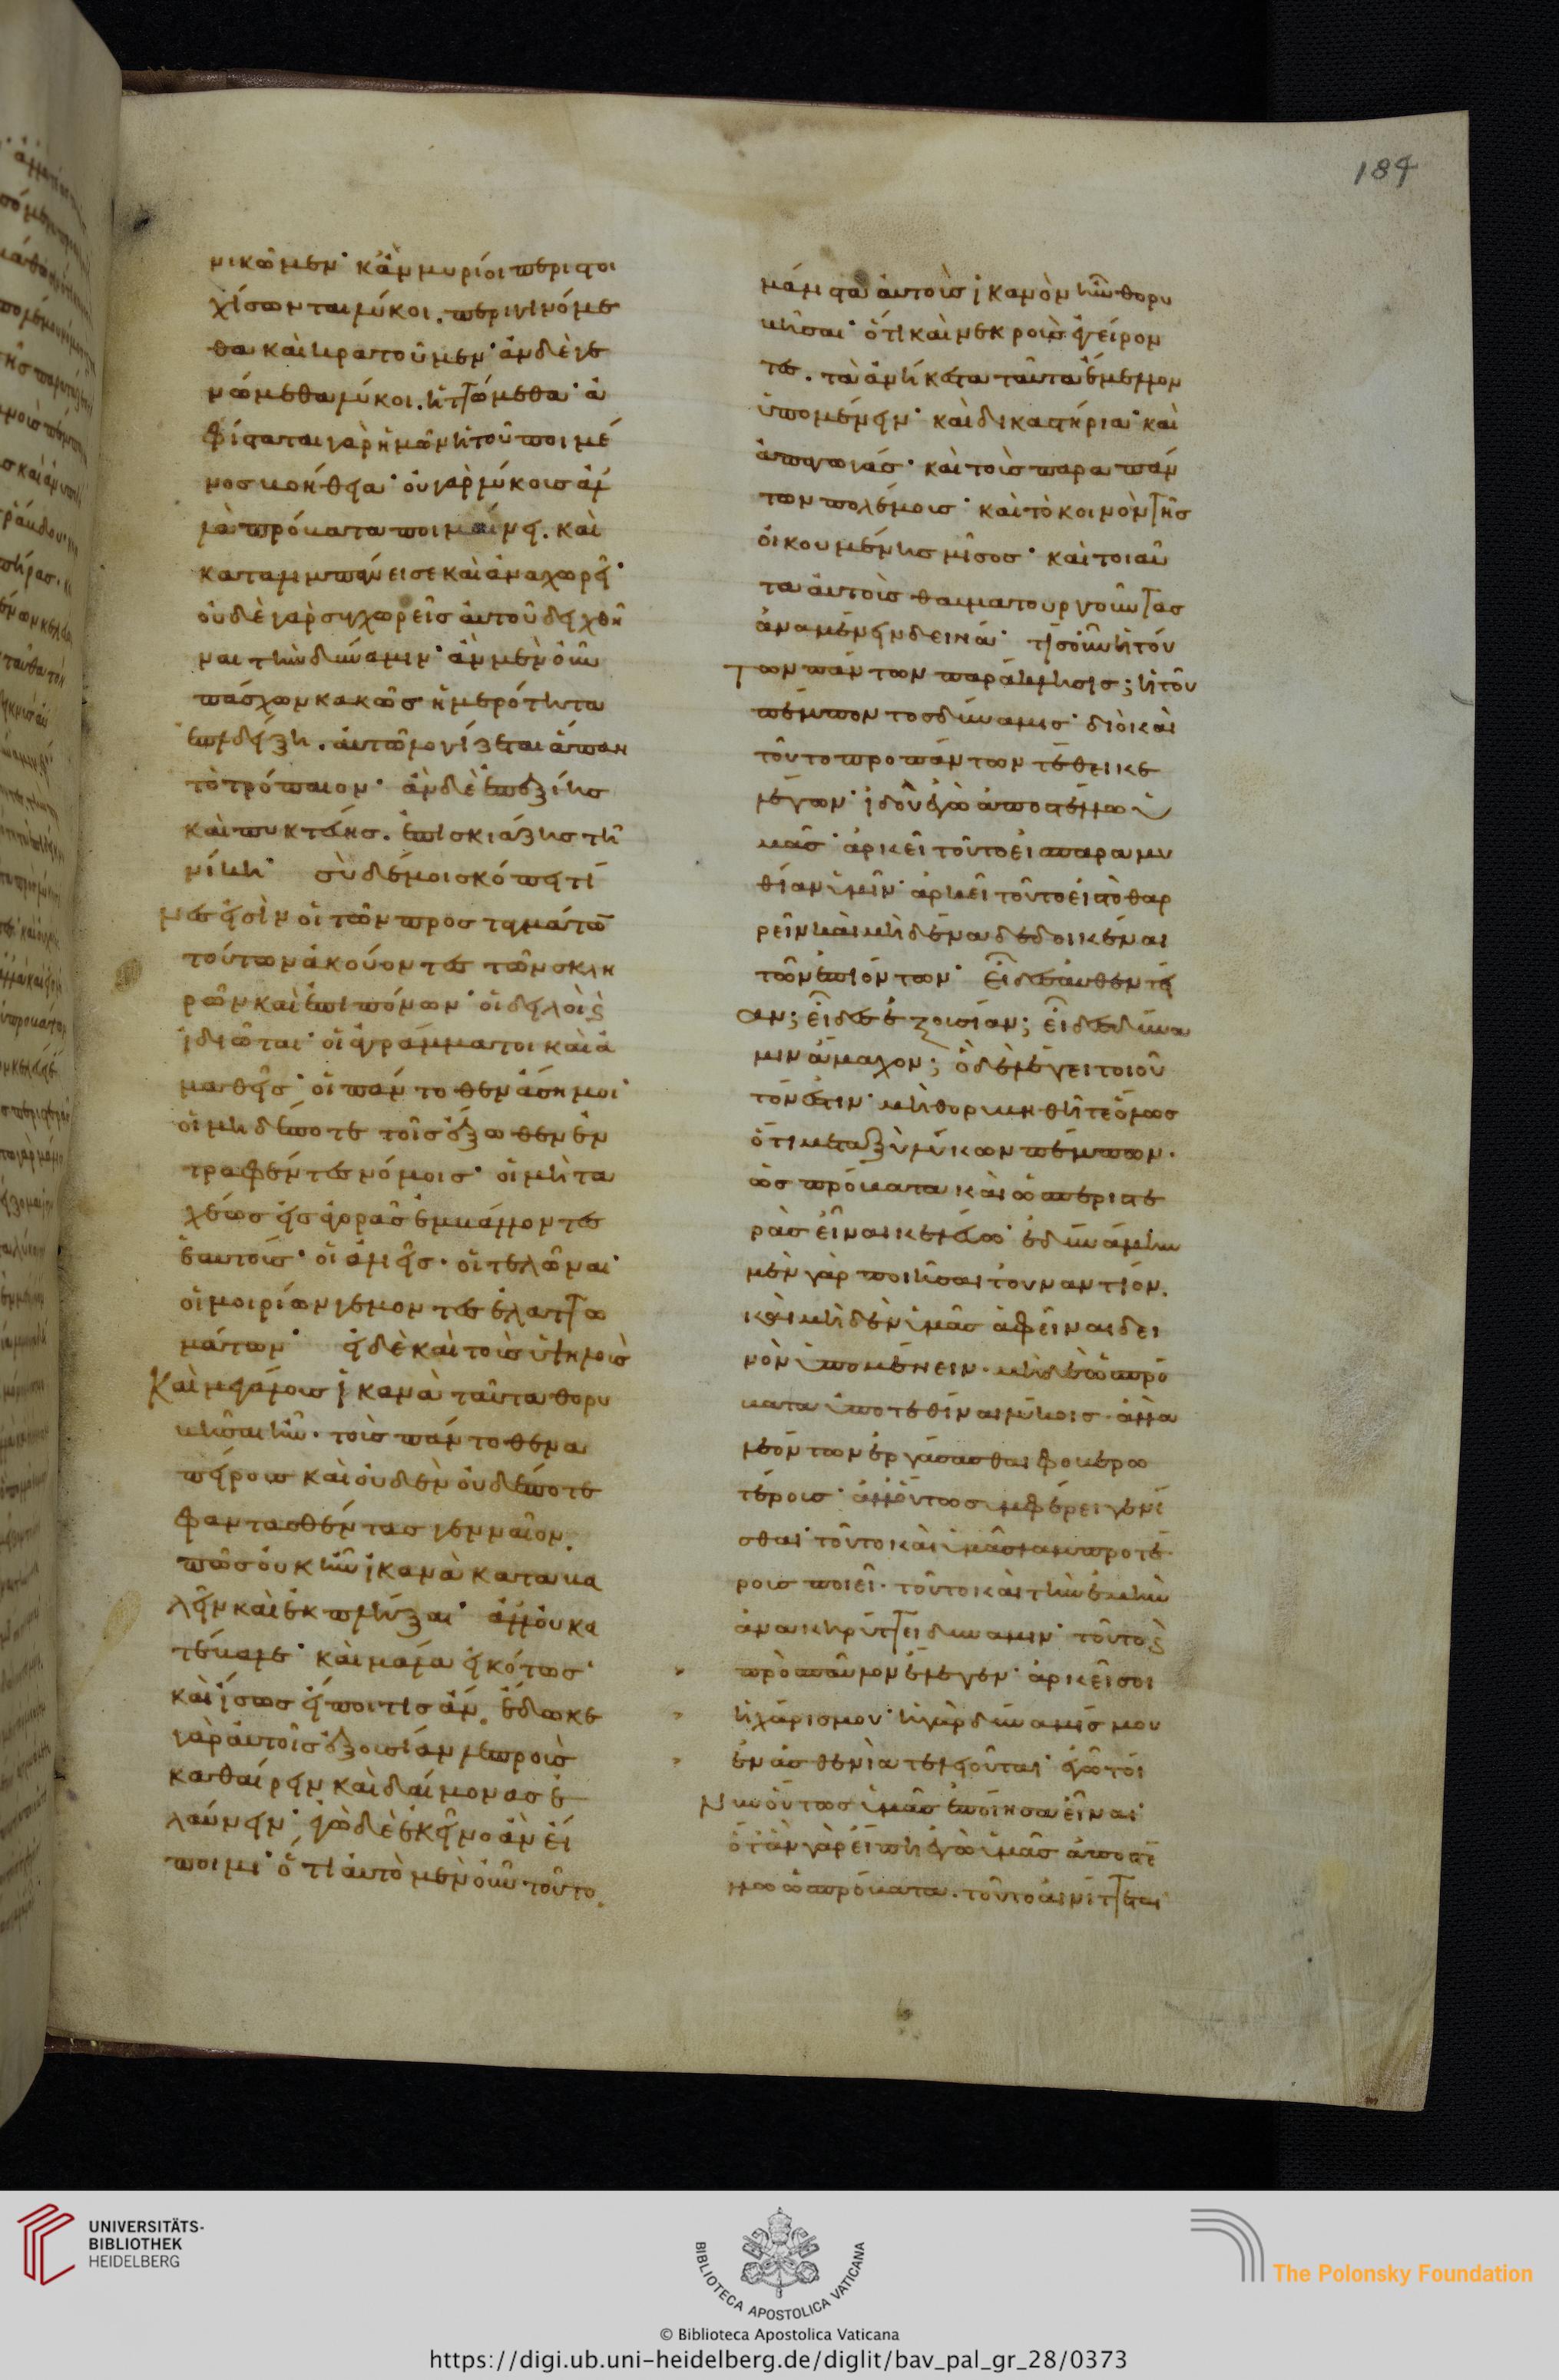 νικῶμεν· κἂν μυρίοι περιστοι
χίσωνται λύκοι. περιγινόμε
θα καὶ κρατοῦμεν· ἂν δὲ γε
νώμεθα λύκοι. ἡττώμεθα· ἀ
φίσταται γὰρ ἡμῶν ἡ τοῦ ποιμέ
νος βοήθεια· οὐ γὰρ λύκους ἀλ
λὰ πρόβατα ποιμαίνει. καὶ
καταλιμπάνει σε καὶ ἀναχωρεῖ·
οὐδὲ γὰρ συγχωρεῖς αὐτοῦ δειχθῆ
ναι τὴν δύναμιν· ἂν μὲν οὖν
πάσχων κακῶς ἡμερότητα
ἐπιδείξη. αὐτῶ λογίζεται ἅπαν
τὸ τρόπαιον· ἂν δὲ ἐπεξίης
καὶ πυκτεύης. ἐπισκιάζης τῆ
νίκη· σὺ δέ μοι σκόπει τί
νές εἰσὶν οἱ τῶν προσταγμάτω̅
τούτων ἀκούοντες τῶν σκλη
ρῶν καὶ ἐπιπόνων· οἱ δειλοὶ ϗ
ἰδιῶται· οἱ ἀγράμματοι καὶ ἀ
μαθεῖς· οἱ πάντοθεν ἄσημοι·
οἱ μηδέποτε τοῖς ἔξωθεν ἐν
τραφέντες νόμοις· οἱ μὴ τα
χέως εἰς ἀγορὰς ἐμβάλλοντες
ἑαυτούς· οἱ ἁλιεῖς· οἱ τελῶναι·
οἱ μυρίων γέμοντες ἐλαττω
μάτων· εἰ δὲ καὶ τοὺς ὑψηλοὺς
καὶ μεγάλους ἱκανὰ ταῦτα θορυ
βῆσαι ἦν. τοὺς πάντοθεν ἀ
πείρους καὶ οὐδὲν οὐδέποτε
φαντασθέντας γενναῖον.
πῶς οὐκ ἦν ἱκανὰ καταβα
λεῖν καὶ ἐκπλῆξαι· ἀλλ' οὐ κα
τέβαλε· καὶ μάλα εἰκότως·
καὶ ἴσως εἴποι τις ἄν. ἔδωκε
γὰρ αὐτοῖς ἐξουσίαν λεπροὺς
καθαίρειν καὶ δαίμονας ἐ
λαύνειν· ἐγὼ δὲ ἐκεῖνο ἂν εἴ
ποιμι· ὅτι αὐτὸ μὲν οὖν τοῦτο.
μάλιστα αὐτοὺς ἱκανὸν ἦν θορυ
βῆσαι· ὅτι καὶ νεκροὺς ἐγείρον
τες. τὰ ἀνήκεστα ταῦτα ἔμελλον
ὑπομένειν· καὶ δικαστήρια· καὶ
ἀπαγωγάς· καὶ τοὺς παρὰ πάν
των πολέμους· καὶ τὸ κοινὸν τῆς
οἰκουμένης μῖσος· καὶ τοιαῦ
τα αὐτοὺς θαυματουργοῦντας
ἀναμένειν δεινά· τίς οὖν ἡ τού
των πάντων παράκλησις; ἡ τοῦ
πέμποντος δύναμις· διὸ καὶ
τοῦτο πρὸ πάντων τέθεικε
λέγων· ἰδοῦ ἐγὼ ἀποστέλλω ὑ
μᾶς· ἀρκεῖ τοῦτο εἰς παραμυ
θίαν ὑμῖν· ἀρκεῖ τοῦτο εἰς τὸ θαρ
ρεῖν καὶ μηδένα δεδοικέναι
τῶν ἐπιόντων· εἶδες αὐθεντεί
αν; εἶδες ἐξουσίαν; εἶδες δύνα
μιν ἄμαχον; ὃ δὲ λέγει τοιοῦ
τόν ἐστιν· μὴ θορυβηθῆτε ὅμως
ὅτι μεταξὺ λύκων πέμπων.
ὡς πρόβατα καὶ ὡς περιστε
ρὰς εἶναι κελεύω· ἐδυνάμην
μὲν γὰρ ποιῆσαι τοὐναντίον.
καὶ μηδὲν ὑμᾶς ἀφεῖναι δει
νὸν ὑπομένειν. μηδὲ ὡς πρό
βατα ὑποτεθῆναι λύκοις. ἀλλὰ
λεόντων ἐργάσασθαι φοβερω
τέρους· ἀλλ' οὕτως συμφέρει γενέ
σθαι τοῦτο καὶ ὑμᾶς λαμπροτέ
ρους ποιεῖ. τοῦτο καὶ τὴν ἐμὴν
ἀνακηρύττει δύναμιν· τοῦτο ϗ
πρὸς παῦλον ἔλεγεν· ἀρκεῖ σοι
ἡ χάρις μου· ἡ γὰρ δύναμίς μου
ἐν ἀσθενεία τελειοῦται· ἐγὼ τοί
νυν οὕτως ὑμᾶς ἐποίησα εἶναι·
ὅταν γὰρ εἴπη ἐγὼ ὑμᾶς ἀποστέ
λλω ὡς πρόβατα. τοῦτο αἰνίττεται
184
UNIVERSITÄTS-
BIBLIOTHEK
HEIDELBERG
BIBLIOTECA APOSTOLICA VATICANA
The Polonsky Foundation
© Biblioteca Apostolica Vaticana
https://digi.ub.uni-heidelberg.de/diglit/bav_pal_gr_28/0373